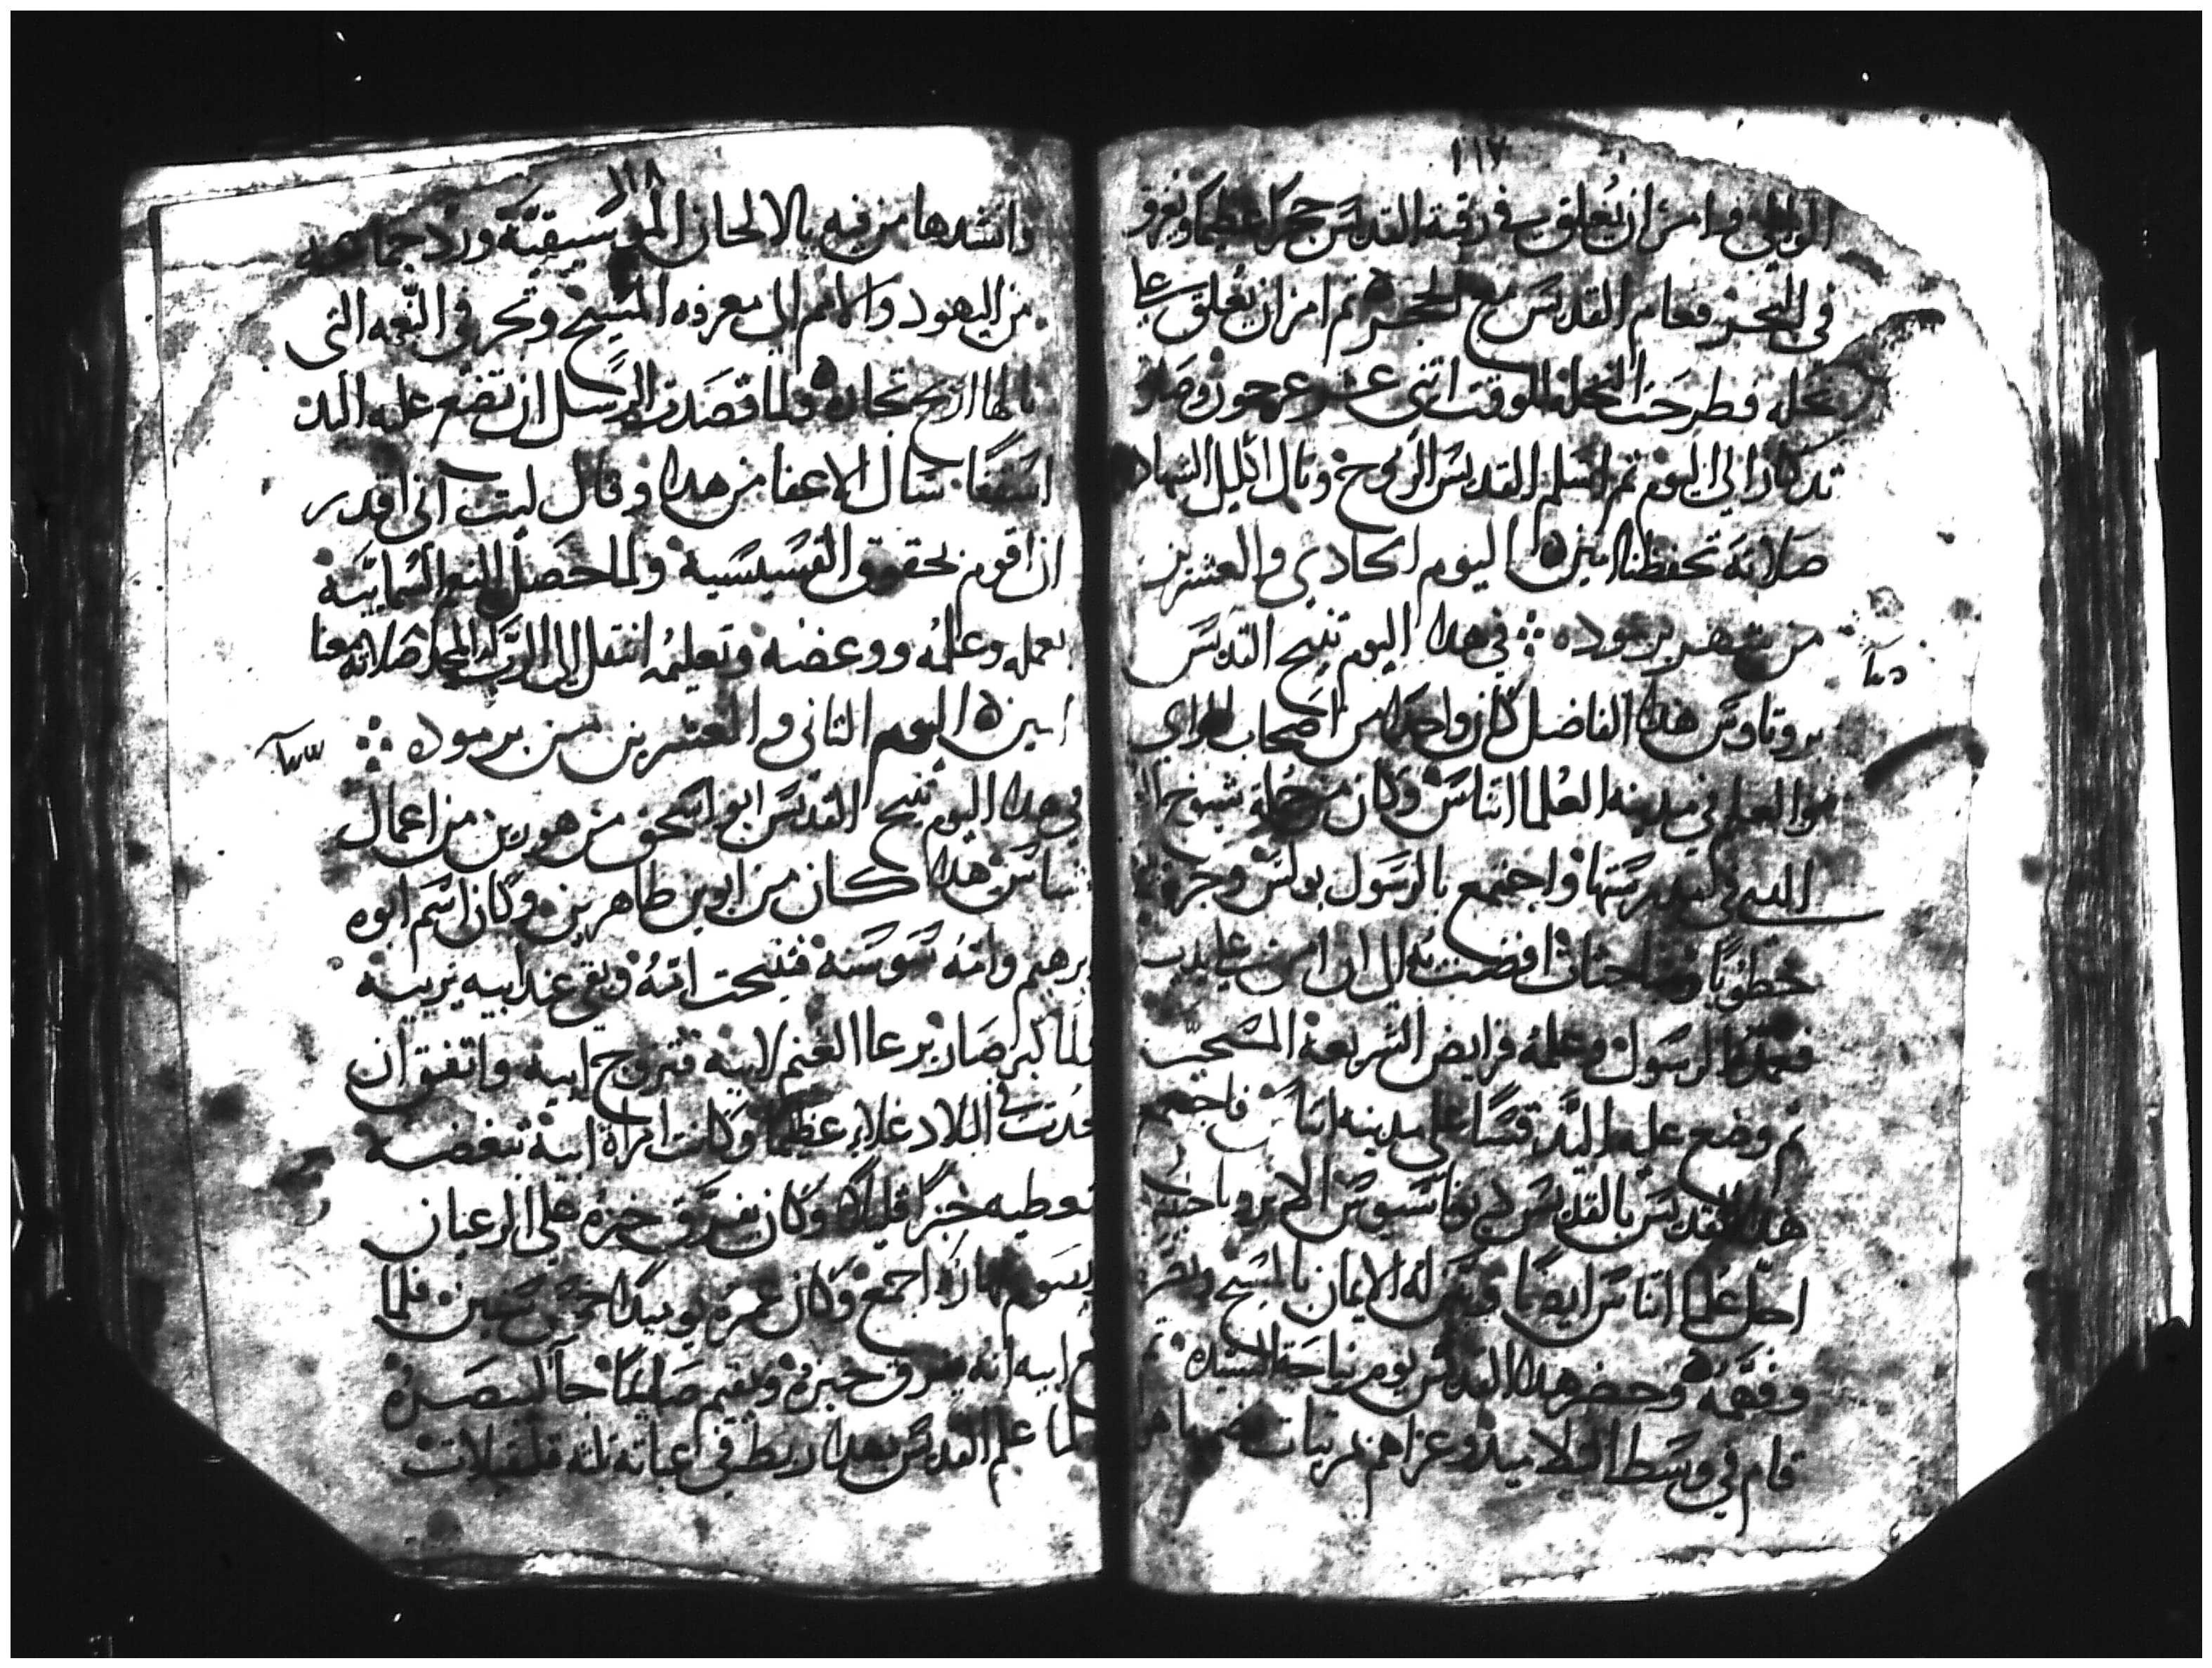 ١١٧
الوالي وامر ان يعلق في رقبة القديس حجرا عظيما ويغرق
في البحر فعام القديس مع الحجر ثم امر ان يعلق علي
نخله فطرحت النخله للوقت اتنى عشر عرجون وصار
تدكار الي اليوم ثم اسلم القديس الروح ونال اكليل الشهاده
صلاته تحفظنا امين ه اليوم الحادي والعشرين
من شهر برموده ه في هدا اليوم تنيح القديس
بروتاوس هدا الفاضل كان واحدا من اصحاب الراي
والعلم في مدينه العلما اتناس وكان من جملة شيوخ
الدي في مدرستها واجتمع بالرسول بولس وجرت
خطوبا ومباحثات افضت به الي ان امن علي يديه
فعمده الرسول وعلمه فرايض الشريعة المسيحيه
ثم وضع عليه اليد قسا علي مدينه اتناس فاجتمع
هدا القديس بالقديس ديوناسيوس الاريوباجي
احد علما اتناس ايضا وفسر له الايمان بالمسيح
وفقهه وحضر هدا القديس يوم نياحة السيده
قام في وسط التلاميد وعزاهم بمرتبات
١١٨
وانشدها من فيه بالالحان الموسيقيه ورد جماعه
من اليهود والامم الى معرفه المسيح وتجر في النعمه التى
نالها اربح تجاره ولما قصدت الرسل ان تضع عليه اليد
اسقفا سال الاعفا من هدا وقال ليت اني اقدر
ان اقوم بحقوق القسيسية ولما حصل النعم السماييه
بعمله وعلمه ووعضه وتعليمه انتقل الي الرب له المجد صلاته معنا
امين ه اليوم التانى والعشرين من برموده
في هدا اليوم تنيح القديس ابو اسحق من هورين من اعمال
شباس هدا كان من ابوين طاهرين وكان اسم ابوه
ابرهيم وامه سوسنه فتنيحت امه وبقي عند ابيه يربيه
فلما كبر صار يرعا الغنم لابيه فتزوج ابيه واتفق ان
حدت في البلاد غلاء عظيما وكانت امراة ابيه تبغضه
تعطيه خبزا قليلا وكان يفرق خبزه علي الرعيان
ويصوم نهاره اجمع وكان عمره يوميدا خمس سنين فلما
سمع ابيه انه يفرق خبزه ويقيم صايما جا ليبصره
فلما علم القديس بهدا ربط في عباته تلته قلقيلات